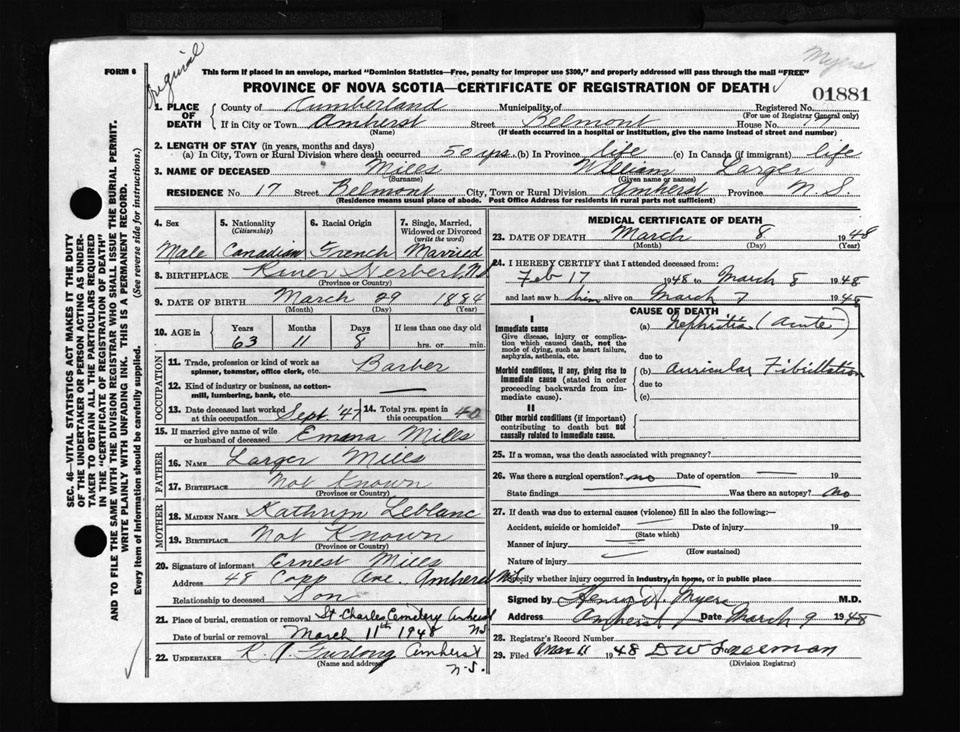 Original
Myers
FORM 6
This form if placed in an envelope, marked "Dominion Statistics—Free, penalty for improper use $300," and properly addressed will pass through the mail "FREE"
PROVINCE OF NOVA SCOTIA—CERTIFICATE OF REGISTRATION OF DEATH
01881
SEC. 46—VITAL STATISTICS ACT MAKES IT THE DUTY
OF THE UNDERTAKER OR PERSON ACTING AS UNDER-
TAKER TO OBTAIN ALL THE PARTICULARS REQUIRED
IN THE "CERTIFICATE OF REGISTRATION OF DEATH"
AND TO FILE THE SAME WITH THE DIVISION REGISTRAR WHO SHALL ISSUE THE BURIAL PERMIT.
WRITE PLAINLY WITH UNFADING INK. THIS IS A PERMANENT RECORD.
Every item of information should be carefully supplied. (See reverse side for instructions.)
1. PLACE OF DEATH County of Cumberland Municipality of Registered No.
(For use of Registrar General only)
If in City or Town Amherst Street Belmont House No. 17
(Name) (If death occurred in a hospital or institution, give the name instead of street and number)
2. LENGTH OF STAY (in years, months and days)
(a) In City, Town or Rural Division where death occurred 50 yrs. (b) In Province life (c) In Canada (if immigrant) life
3. NAME OF DECEASED Mills William Larger
(Surname) (Given name or names)
RESIDENCE No. 17 Street Belmont City, Town or Rural Division Amherst Province N.S.
(Residence means usual place of abode. Post Office Address for residents in rural parts not sufficient)
4. Sex 5. Nationality (Citizenship) 6. Racial Origin 7. Single, Married, Widowed or Divorced (write the word)
Male Canadian French Married
8. BIRTHPLACE River Herbert, N.S.
(Province or Country)
9. DATE OF BIRTH March 29 1884
(Month) (Day) (Year)
10. AGE in Years Months Days If less than one day old
63 11 8 hrs. or min.
OCCUPATION
11. Trade, profession or kind of work as spinner, teamster, office clerk, etc. Barber
12. Kind of industry or business, as cotton-mill, lumbering, bank, etc.
13. Date deceased last worked at this occupation Sept '47 14. Total yrs. spent in this occupation 40
15. If married give name of wife or husband of deceased Emma Mills
FATHER
16. NAME Larger Mills
17. BIRTHPLACE Not Known
(Province or Country)
MOTHER
18. MAIDEN NAME Kathryn Leblanc
19. BIRTHPLACE Not Known
(Province or Country)
20. Signature of informant Ernest Mills
Address 48 Copp Ave. Amherst N.S.
Relationship to deceased Son
21. Place of burial, cremation or removal St Charles Cemetery Amherst N.S.
Date of burial or removal March 11th 1948
22. UNDERTAKER R. J. Furlong Amherst N.S.
(Name and address)
MEDICAL CERTIFICATE OF DEATH
23. DATE OF DEATH March 8 1948
(Month) (Day) (Year)
24. I HEREBY CERTIFY that I attended deceased from:
Feb 17 1948 to March 8 1948
and last saw h him alive on March 7 1948
CAUSE OF DEATH
I
Immediate cause (a) Nephritis (acute)
Give disease, injury or complication which caused death, not the mode of dying, such as heart failure, asphyxia, asthenia, etc.
due to
Morbid conditions, if any, giving rise to immediate cause (stated in order proceeding backwards from immediate cause).
(b) Auricular Fibrillation
due to
(c)
II
Other morbid conditions (if important) contributing to death but not causally related to immediate cause.
25. If a woman, was the death associated with pregnancy?
26. Was there a surgical operation? no Date of operation 19
State findings Was there an autopsy? no
27. If death was due to external causes (violence) fill in also the following:—
Accident, suicide or homicide? Date of injury 19
(State which)
Manner of injury
(How sustained)
Nature of injury
Specify whether injury occurred in industry, in home, or in public place
Signed by Henry W. Myers M.D.
Address Amherst Date March 9 1948
28. Registrar's Record Number
29. Filed Mar 11 1948 D W Freeman
(Division Registrar)